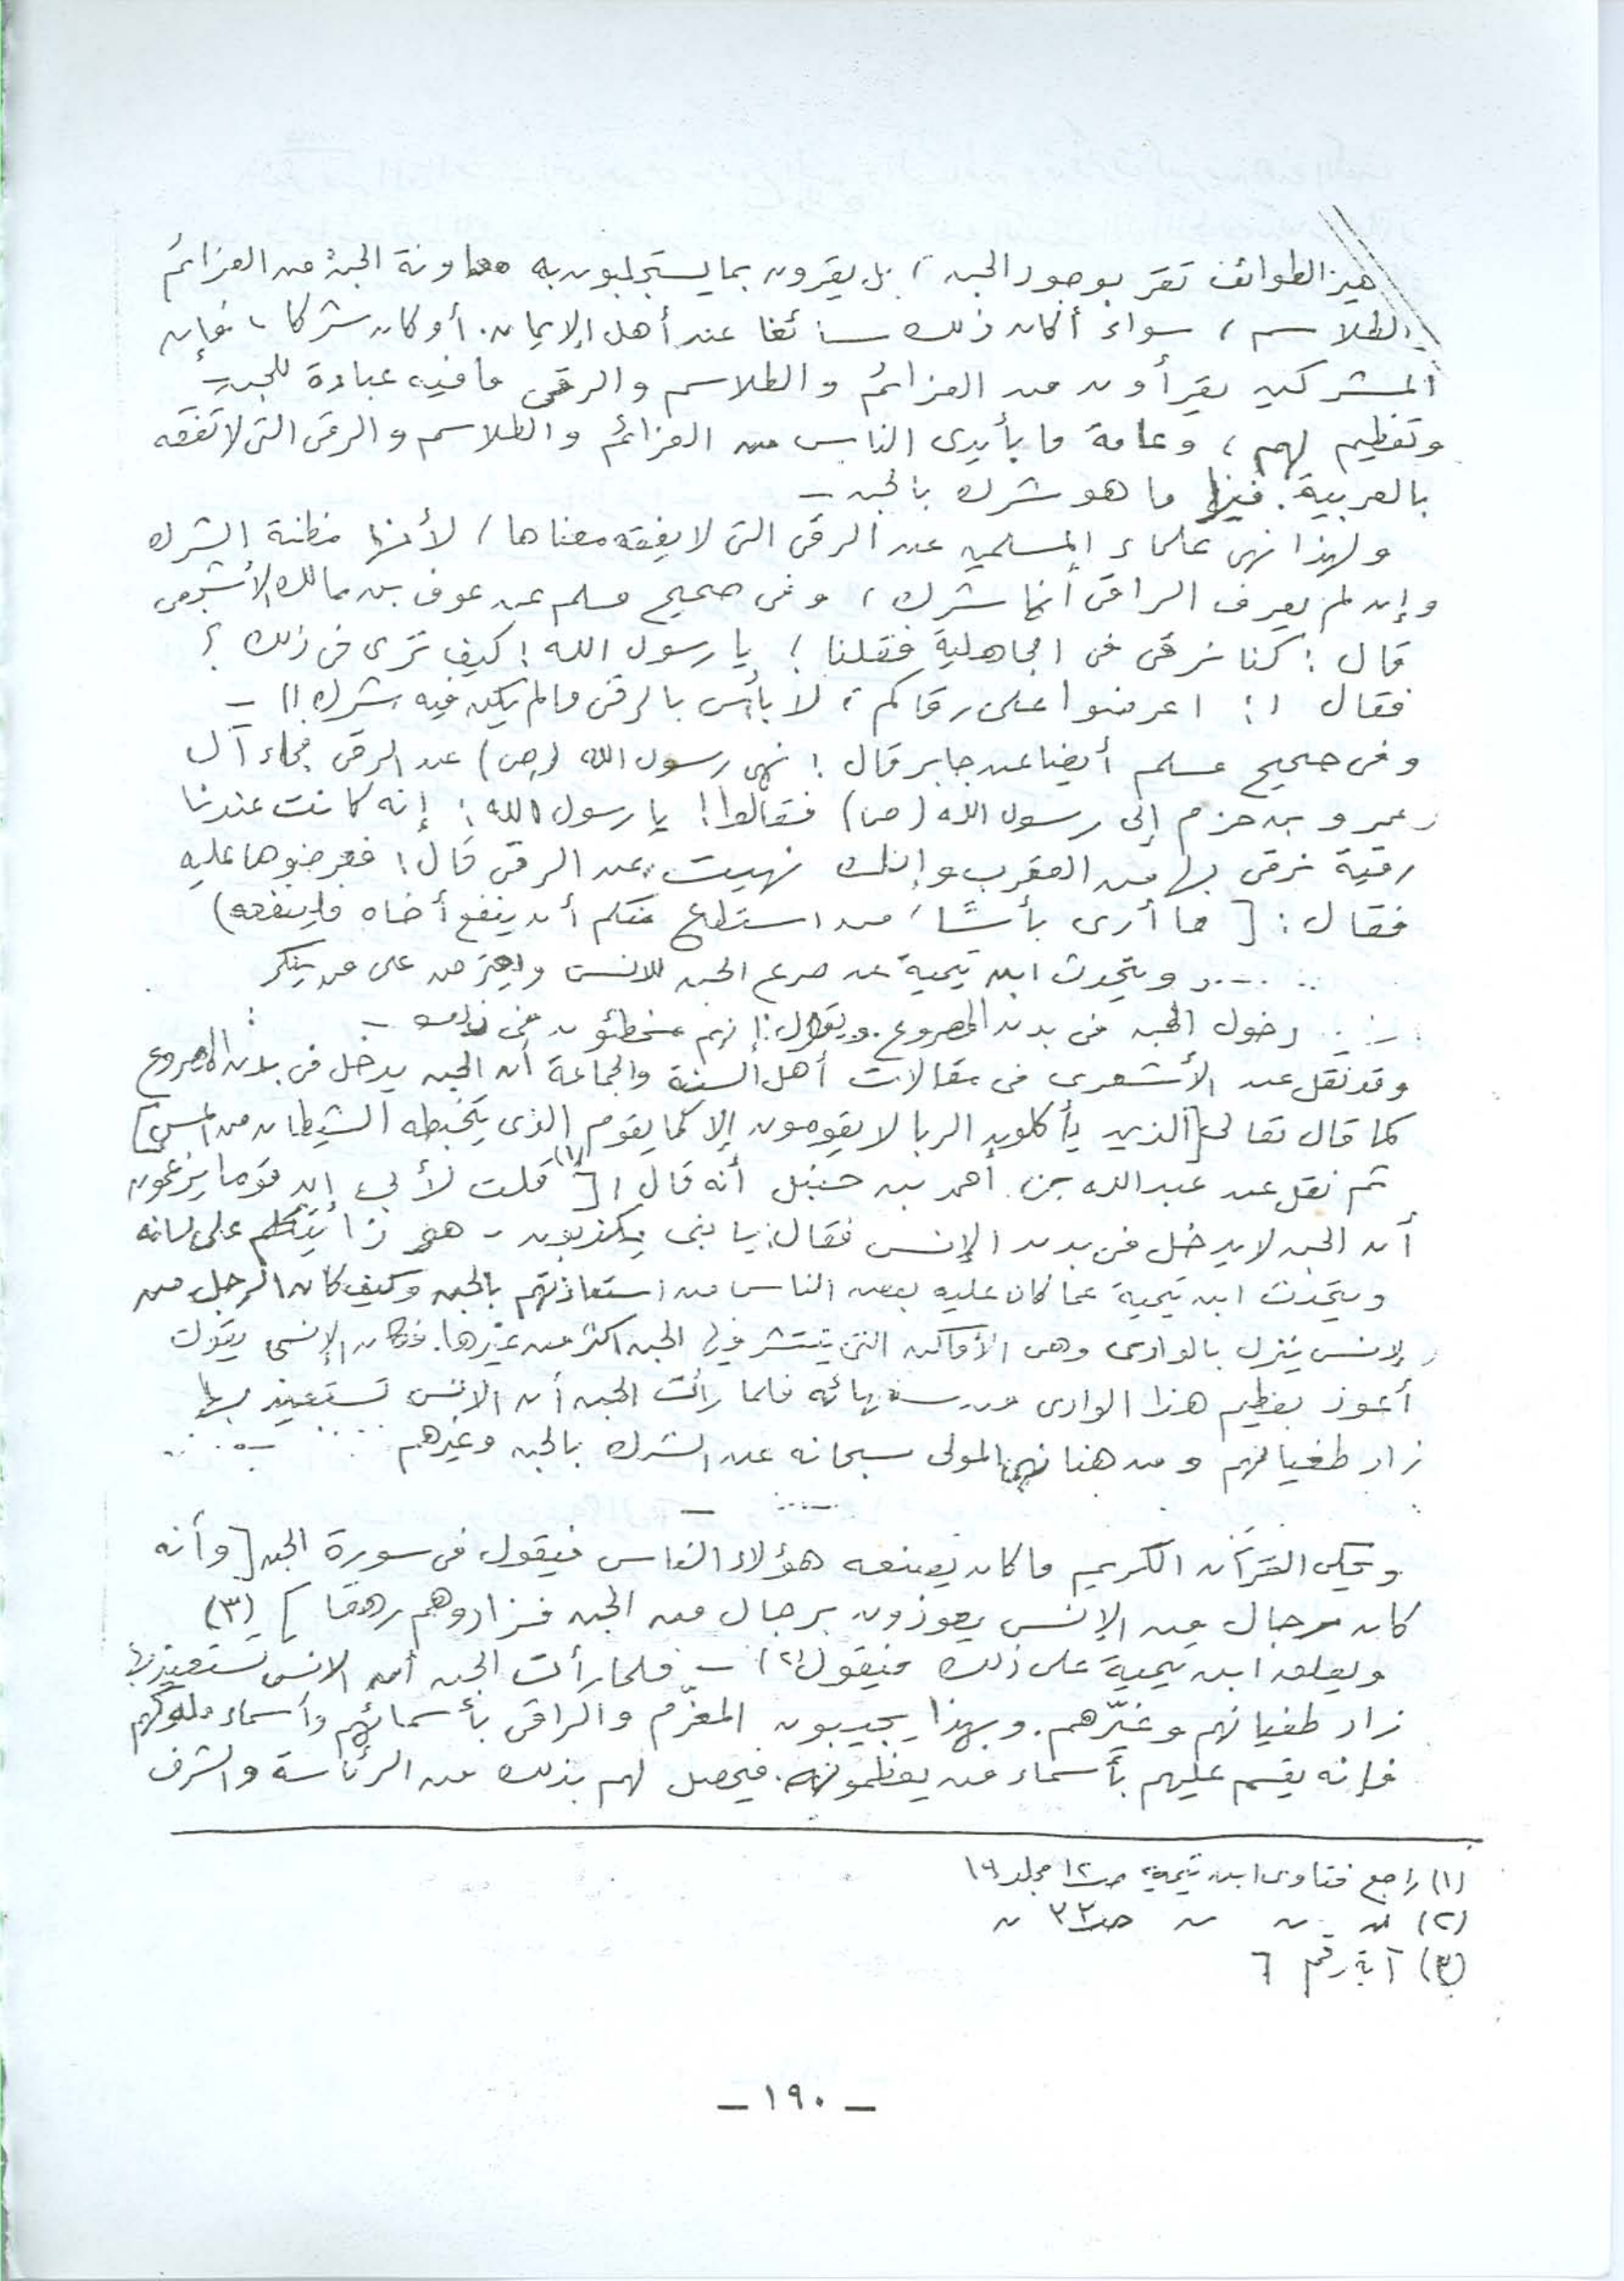 هذه الطوائف تقر بوجود الجن ، بل يقرون بما يستجلبون به معاونة الجن من العزائم
والطلاسم ، سواء أكان ذلك سائغا عند أهل الإيمان. أو كان شركا ، فإن
المشركين يقرأون من العزائم والطلاسم والرقى ما فيه عبادة للجن –
وتعظيم لهم ، وعامة ما بأيدى الناس من العزائم والطلاسم والرقى التى لا تفقه
بالعربية. فيها ما هو شرك بالجن –
ولهذا نهى علماء المسلمين عن الرقى التى لا يفقه معناها / لأنها مظنة الشرك
وإن لم يعرف الراقى أنها شرك ، وفى صحيح مسلم عن عوف بن مالك الأشجعى
قال : كنا نرقى فى الجاهلية فقلنا ! يا رسول الله ! كيف ترى فى ذلك ؟
فقال : اعرضوا على رقاكم ، لا بأس بالرقى ما لم يكن فيه شرك )) –
وفى صحيح مسلم أيضا عن جابر قال : نهى رسول الله (ص) عن الرقى فجاء آل
عمرو بن حزم إلى رسول الله (ص) فقالوا ! يا رسول الله : إنه كانت عندنا
رقية نرقى بها من العقرب وإنك نهيت عن الرقى قال : فعرضوها عليه
فقال : [ ما أرى بأسًا / من استطاع منكم أن ينفع أخاه فلينفعه )
.. ..... ويتحدث ابن تيمية عن صرع الجن للانس واعترض على من ينكر
دخول الجن فى بدن المصروع. ويقول : إنهم مخطئون فى ذلك –
وقد نقل عن الأشعرى فى مقالات أهل السنة والجماعة أن الجن يدخل فى بدن المصروع
كما قال تعالى [الذين يأكلون الربا لا يقومون إلا كما يقوم الذى يتخبطه الشيطان من المس]
ثم نقل عن عبد الله بن أحمد بن حنبل أنه قال : [(١) قلت لأبى إن قوما يزعمون
أن الجن لا يدخل فى بدن الإنس فقال : يا بنى يكذبون - هو ذا يتكلم على لسانه
ويتحدث ابن تيمية عما كان عليه بعض الناس من استعاذتهم بالجن وكيف كان الرجل من
الإنس ينزل بالوادى وهى الأماكن التى ينتشر فيها الجن اكثر من غيرها. فكان الإنسى يقول
أعوذ بعظيم هذا الوادى من سفهائه فلما رأت الجن أن الانس تستعيذ بها
زاد طغيانهم ومن هنا نهى المولى سبحانه عن الشرك بالجن وغيرهم
ويحكى القرآن الكريم ما كان يصنعه هؤلاء الناس فيقول فى سورة الجن [وأنه
كان رجال من الإنس يعوذون برجال من الجن فزادوهم رهقا ] (٣)
ويعلق ابن تيمية على ذلك فيقول (٢) – فلما رأت الجن أن الانس تستعيذ بها
زاد طغيانهم وغيّرهم. وبهذا يجيبون المعزّم والراقى بأسمائهم وأسماء ملوكهم
فإنه يقسم عليهم بأسماء من يعظمونه. فيحصل لهم بذلك من الرئاسة والشرف
(١) راجع فتاوى ابن تيمية ص١٢ مجلد ١٩
(٢) 〃 〃 〃 ص٣٣ 〃
(٣) آية رقم ٦
– ١٩٠ –